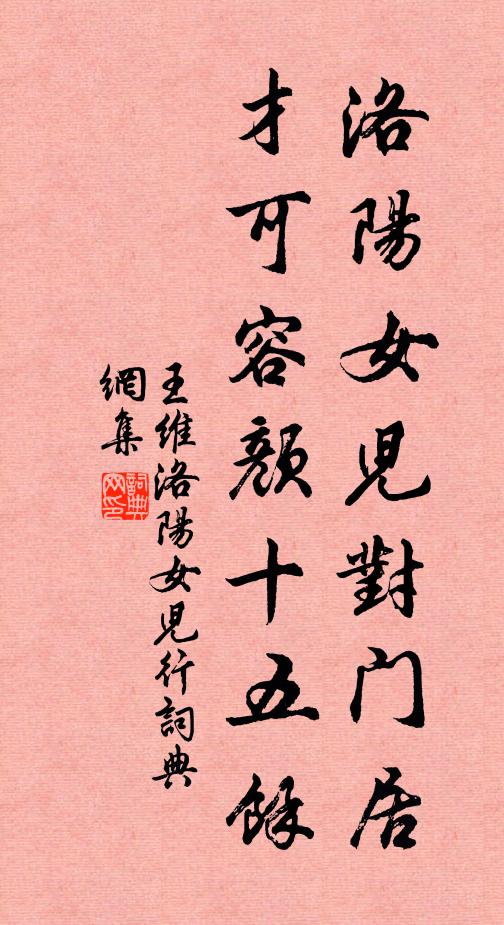 洛陽女児對门居
才可容顔十五餘
王維洛陽女児行詞典
網集
詞典
网印